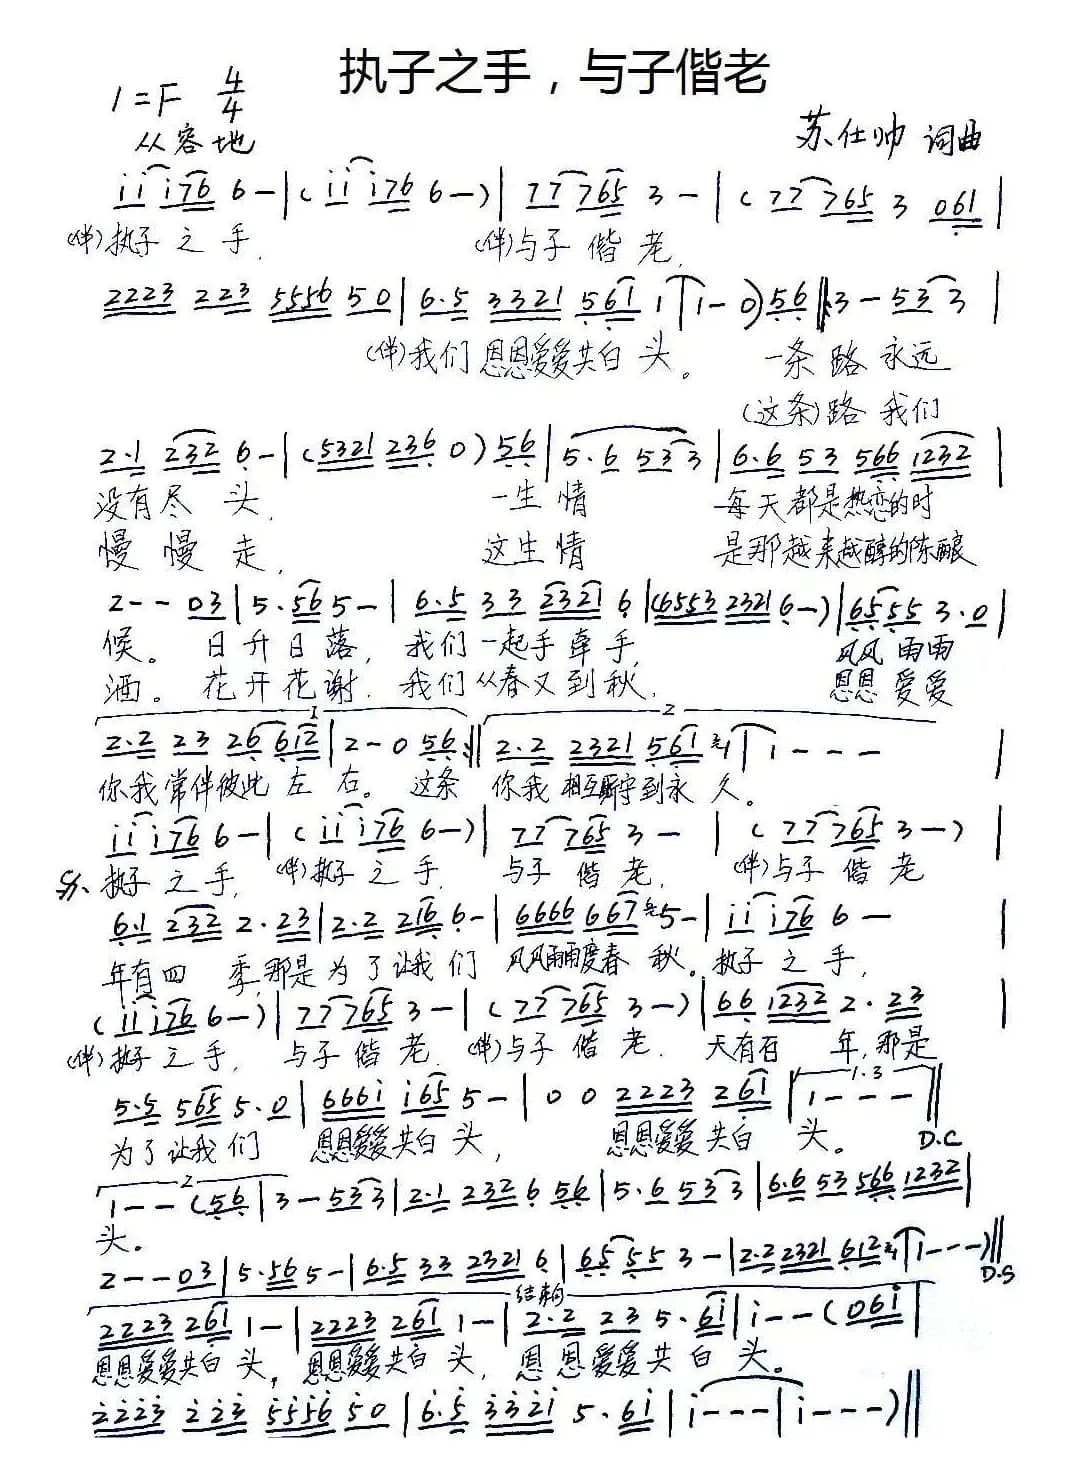 执子之手，与子偕老
1=F 4/4
从容地
苏仕帅 词曲
i i i 7 6 6 - | ( i i i 7 6 6 - ) | 7 7 7 6 5 3 - | ( 7 7 7 6 5 3 0 6 1 |
(伴)执子 之 手, (伴)与子 偕 老,
2223 223 5556 50 | 6.5 3321 561 1 | 1 - 0 ) 56 ‖: 3 - 53 3 |
(伴)我们 恩恩爱爱共白 头。 一条 路 永远
(这条)路 我们
2.1 232 6 - | ( 5321 236 0 ) 56 | 5.6 53 3 | 6.6 53 566 1232 |
没有尽 头, 一生 情 每天都是热恋的时
慢 慢 走, 这生情 是那越来越醇的陈酿
2 - - 03 | 5.56 5 - | 6.5 33 2321 6 | (6553 2321 6 - ) | 65 55 3.0 |
候。 日升日 落, 我们 一起手牵手, 风风 雨雨
洒。 花开花谢, 我们从春又到秋, 恩恩 爱爱
1 2
2.2 23 26 612 | 2 - 0 56 :‖ 2.2 2321 561 1 | 1 - - - |
你我常伴彼此 左 右。 这条 你我 相互厮守到永 久。
i i i 7 6 6 - | ( i i i 7 6 6 - ) | 7 7 7 6 5 3 - | ( 7 7 7 6 5 3 - ) |
执子 之 手, (伴)执子 之 手, 与子 偕 老, (伴)与子 偕 老
6.1 232 2.23 | 2.2 216 6 - | 6666 667 5 - | i i i 7 6 6 - |
年有四 季,那是为了让我们 风风雨雨度春 秋。执子 之 手,
( i i i 7 6 6 - ) | 7 7 7 6 5 3 - | ( 7 7 7 6 5 3 - ) | 66 1232 2.23 |
(伴)执子之 手, 与子偕 老, (伴)与子 偕 老. 天有百 年,那是
5.5 565 5.0 | 666i i65 5 - | 0 0 2223 261 | 1 - - - ‖
1.3
为了让我们 恩恩爱爱共白 头, 恩恩爱爱共白 头。 D.C
2
1 - - ( 56 | 3 - 53 3 | 2.1 232 6 56 | 5.6 53 3 | 6.6 53 566 1232 |
头。
2 - - 03 | 5.56 5 - | 6.5 33 2321 6 | 65 55 3 - | 2.2 2321 612 1 | 1 - - - ) ‖
D.S
结束句
2223 261 1 - | 2223 261 1 - | 2.2 23 5.6i | i - - ( 06i |
恩恩爱爱共白 头, 恩恩爱爱共白 头, 恩恩爱爱共白 头。
2223 223 5556 50 | 6.5 332i 5.6i | i - - - | i - - - ) ‖